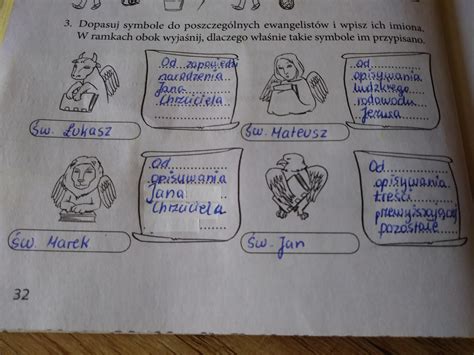 3. Dopasuj symbole do poszczególnych ewangelistów i wpisz ich imiona.
W ramkach obok wyjaśnij, dlaczego właśnie takie symbole im przypisano.
Od zapowiedzi
narodzenia
Jana
Chrzciciela
Św. Łukasz
Od
opisywania
ludzkiego
rodowodu
Jezusa
Św. Mateusz
Od
opisywania
Jana
Chrzciciela
Św. Marek
Od
opisywania
treści
przewyższającej
pozostałe
Św. Jan
32